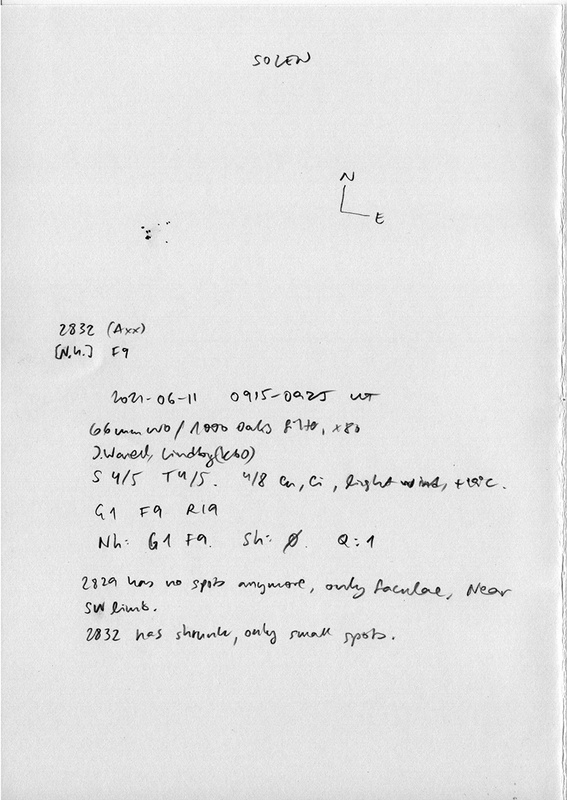 SOLEN
N
E
2832 (Axx)
[N.h.] F9
2021-06-11 0915-0925 UT
66mm WO / 1000 Oaks filter, x80
J.Warell, Lindby (K60)
S 4/5 T4/5. 4/8 Cu, Ci, light wind, +19°C.
G1 F9 R19
Nh: G1 F9. Sh: Ø. Q: 1
2829 has no spots anymore, only faculae, Near
SW limb.
2832 has shrunk, only small spots.